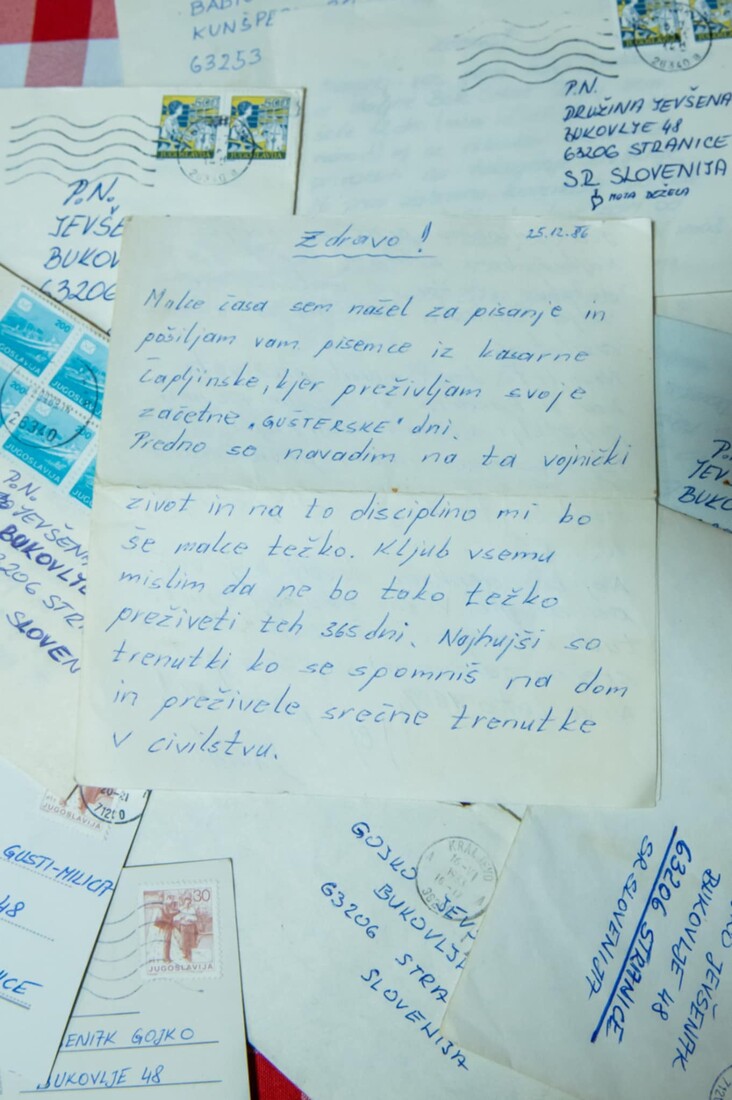 KUNŠPE
63253
P.N.
DRUŽINA JEVŠENA
BUKOVLJE 48
63206 STRANICE
SR SLOVENIJA
MOJA DEŽELA
JUGOSLAVIJA
JUGOSLAVIJA
P.N.
JEVŠE
BUKOV
63206
Zdravo!
25.12.86
Malce časa sem našel za pisanje in
pošiljam vam pisemce iz kasarne
Čapljinske, kjer preživljam svoje
začetne "GUŠTERSKE" dni.
Predno se navadim na ta vojnički
život in na to disciplino mi bo
še malce težko. Kljub vsemu
mislim da ne bo tako težko
preživeti teh 365 dni. Najhujši so
trenutki ko se spomniš na dom
in preživele srečne trenutke
v civilstvu.
200
JUGOSLAVIJA
26340
P.N.
JEVŠENA
BUKOVLJE
3206 STR
SLOVEN
P.N.
JEV
BUKO
71210
JUGOSLAVIJA
GUSTI-MILICA
48
ICE
30
JUGOSLAVIJA
ENIAK GOJKO
BUKOVLJE 48
KRALJEVO
GOJKO JEVT
BUKOVLJ
63206 STRA
SLOVENIJA
JEVŠENJAK
BUKOVLJE 48
63206 STRANICE
SR SLOVENIJA